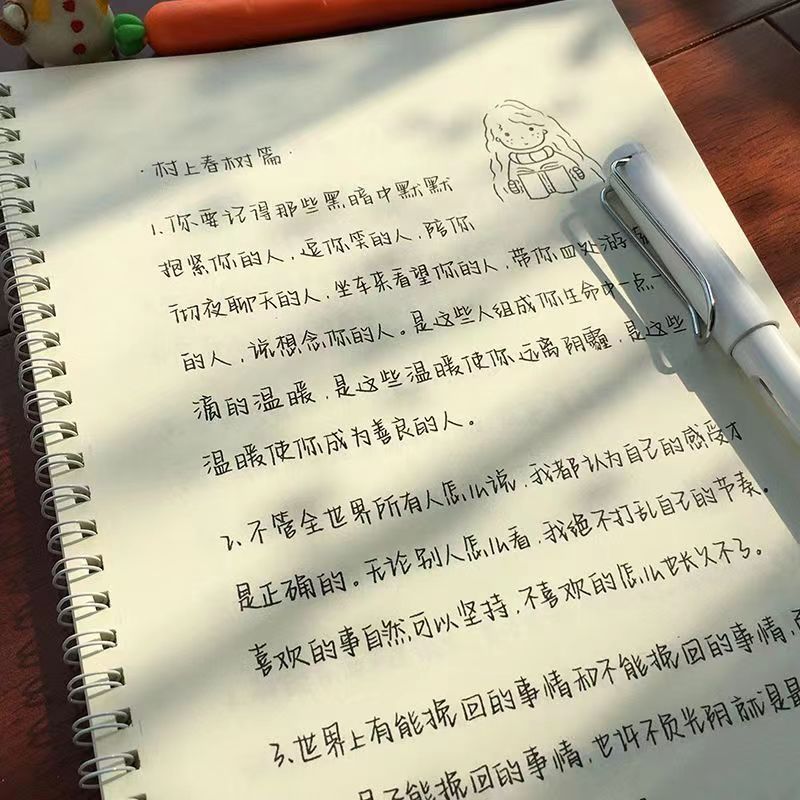 ·村上春树篇·
1.你要记得那些黑暗中默默
抱紧你的人,逗你笑的人,陪你
彻夜聊天的人,坐车来看望你的人,带你四处游
的人,说想念你的人。是这些人组成你生命中一点一
滴的温暖,是这些温暖使你远离阴霾,是这些
温暖使你成为善良的人。
2、不管全世界所有人怎么说,我都认为自己的感受才
是正确的。无论别人怎么看,我绝不打乱自己的节奏。
喜欢的事自然可以坚持,不喜欢的怎么也长久不了。
3、世界上有能挽回的事情和不能挽回的事情,
是不能挽回的事情,也许不负光阴就是最